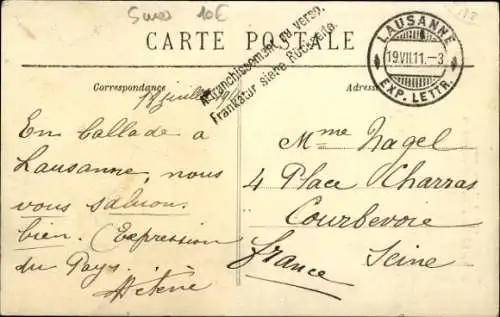 Suisse 10€
CARTE POSTALE
Affranchissement au verso.
Frankatur siehe Rückseite.
LAUSANNE
19.VII.11.-3
EXP. LETTR.
Correspondance
Adresse
17 juillet
En ballade a
Lausanne, nous
vous saluon.
bien. (Expression
du Pays.
Hélène
Mme Nagel
4 Place Charras
Courbevoie
Seine
France